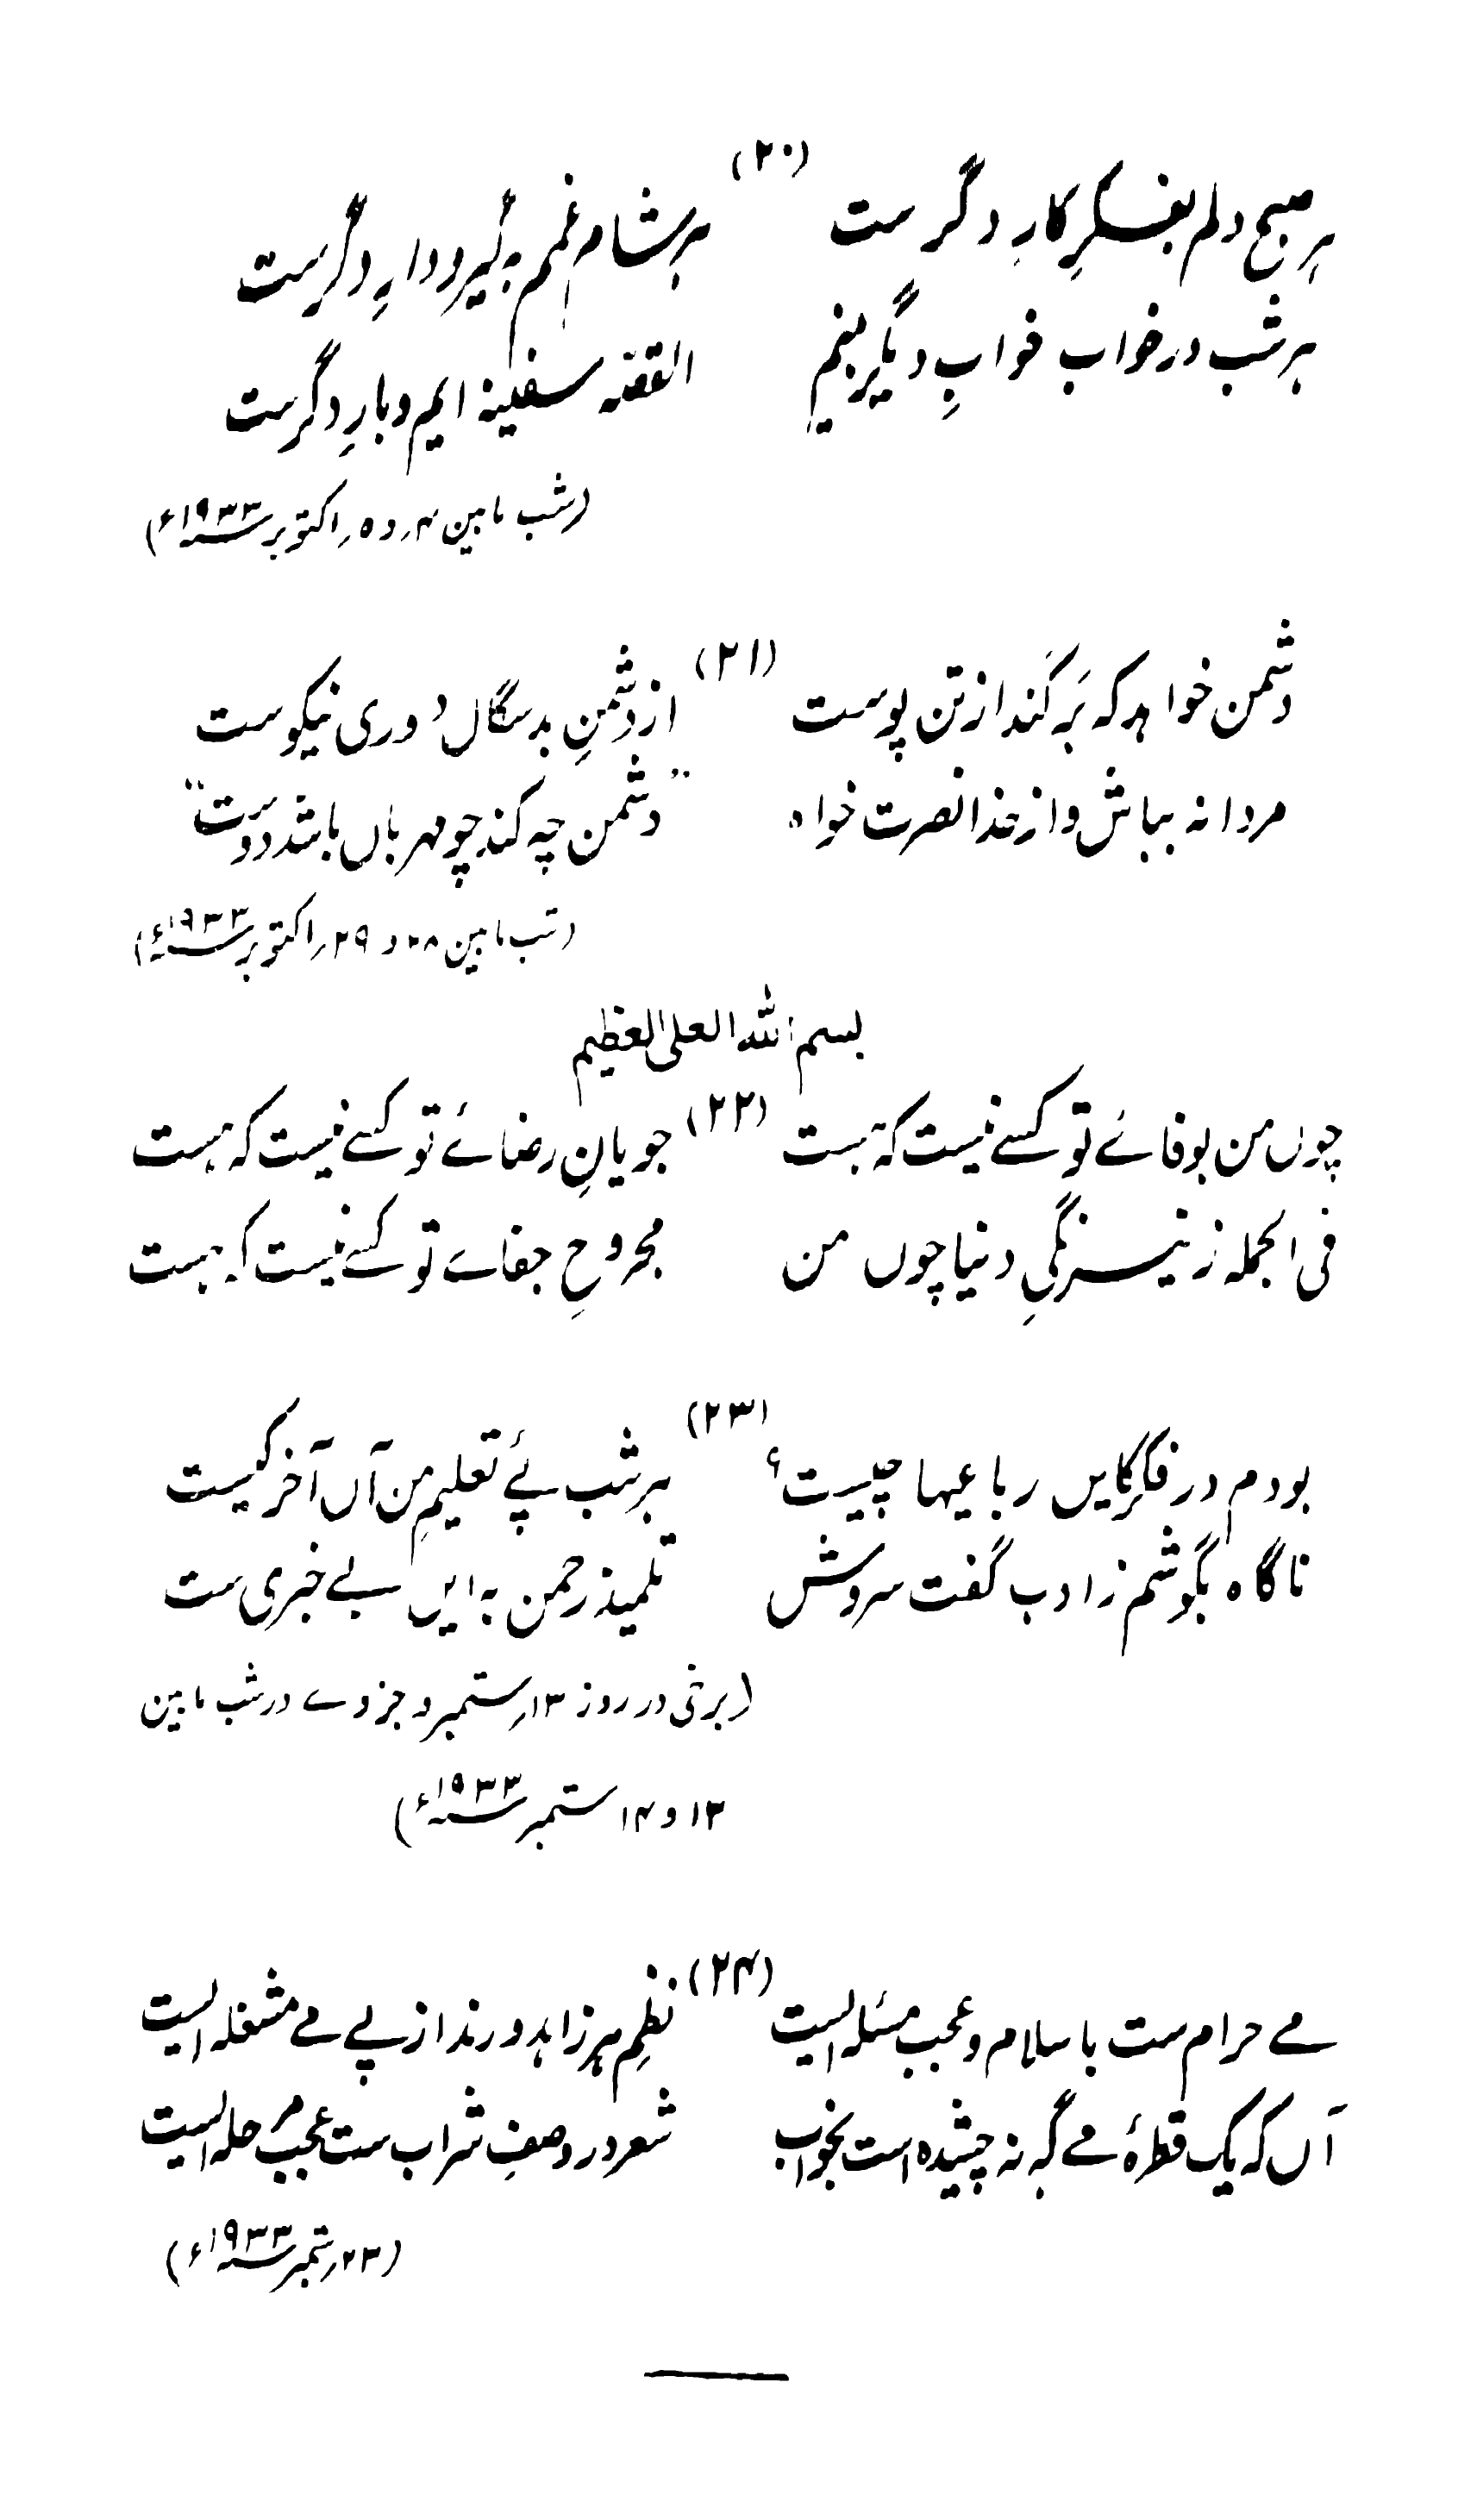 (۲۰)
ہر صبح دلم بفکرِ کارِ دگرست ہر شام غمم بگیر و دارِ دگرست
ہر شب در خواب خوابِ دیگر بینم القصّہ سفینہ ایم و بارِ دگرست
(شب مابین ۴ و ۵ اکتوبر ۱۹۳۳ء)
(۲۱)
دشمن خواہد کہ بَرکَند از تن پوست از دشمنِ بدسگال دُوری نیکوست
مردانہ بباش و از خدا نصرت خواہ "دشمن چہ کند چو مہرباں باشد دوست"
(شب مابین ۲۸ و ۲۹ اکتوبر ۱۹۳۳ء)
بسم اللہ العلی العظیم
(۲۲)
چوں من بوفائے تو کسے نیست کہ ہست جویانِ رضائے تو کسے نیست کہ ہست
فی الجملہ ز نیرنگیِ دنیا چوں من مجروحِ جفائے تو کسے نیست کہ ہست
(۲۳)
بودم در فکر کایں رباعیہا چیست؟ ہر شب پئے تعلیمِ من آں آخر کیست
ناگاہ بگوشم ز ادب گفت سروش تلمیذ رحمن بہ ایں بے خبری ست
(برخی در روز ۱۳ ستمبر و جزوے در شب مابین
۱۳ و ۱۴ ستمبر ۱۹۳۳ء)
(۲۴)
مے حرام ست باسلام و عجب مسئلہ ایست نظمِ ہر زاہد و رند از پے مے مشغلہ ایست
آں کہ یک قطرۂ مے گہ نہ چشیدہ است بخواب شعر در وصفِ شراب ست عجیب حلہ ایست
(۲۳ ستمبر ۱۹۳۳ء)